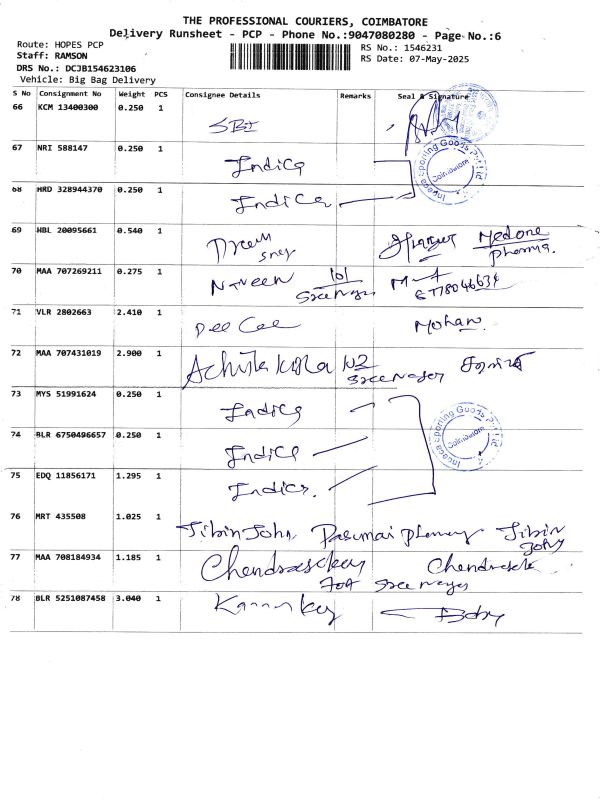 THE PROFESSIONAL COURIERS, COIMBATORE
Delivery Runsheet - PCP - Phone No.:9047080280 - Page No.:6
Route: HOPES PCP
Staff: RAMSON
DRS No.: DCJB154623106
Vehicle: Big Bag Delivery
RS No.: 1546231
RS Date: 07-May-2025
S No Consignment No Weight PCS Consignee Details Remarks Seal & Signature
66 KCM 13400300 0.250 1 SBI
67 NRI 588147 0.250 1 Indica
68 HRD 328944370 0.250 1 Indica
Incega Sporting Goods Pvt Ltd
Coimbatore
69 HBL 20095661 0.540 1 Dream Medone
pharma.
70 MAA 707269211 0.275 1 Naveen 101
Sreenagar
71 VLR 2802663 2.410 1 Dee Cee Mohan
72 MAA 707431019 2.900 1 102
Sreenagar
73 MYS 51991624 0.250 1 Indica
74 BLR 6750496657 0.250 1 Indica
75 EDQ 11856171 1.295 1 Indica
Incega Sporting Goods Pvt Ltd
Coimbatore
76 MRT 435508 1.025 1 Jibin John Jibin
John
77 MAA 708184934 1.185 1
78 BLR 5251087458 3.040 1